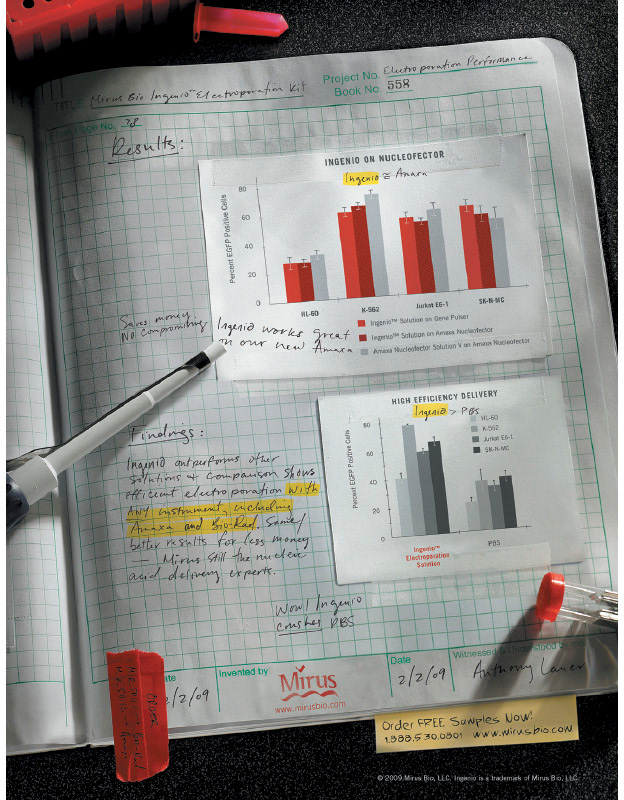 TITLE Mirus Bio Ingenio™ Electroporation Kit
Project No. Electroporation Performance
Book No. 558
Page No. 38
Results:
INGENIO ON NUCLEOFECTOR
Ingenio ≅ Amaxa
Percent EGFP Positive Cells
80
60
40
20
0
HL-60 K-562 Jurkat E6-1 SK-N-MC
Ingenio™ Solution on Gene Pulser
Ingenio™ Solution on Amaxa Nucleofector
Amaxa Nucleofector Solution V on Amaxa Nucleofector
Saves money
No compromising
Ingenio works great
on our new Amaxa
HIGH EFFICIENCY DELIVERY
Ingenio > PBS
HL-60
K-562
Jurkat E6-1
SK-N-MC
Percent EGFP Positive Cells
80
60
40
20
0
Ingenio™
Electroporation
Solution
PBS
Findings:
Ingenio outperforms other
solutions & comparison shows
efficient electroporation with
ANY instrument, including
Amaxa and Bio-Rad. Same/
better results for less money
Mirus still the nucleic
acid delivery experts.
Wow! Ingenio
crushes PBS
ate
2/2/09
Invented by
Mirus
www.mirusbio.com
Date
2/2/09
Witnessed & Understood by me
Anthony Lauer
Order FREE Samples Now!
1.888.530.0801 www.mirusbio.com
© 2009 Mirus Bio, LLC. Ingenio is a trademark of Mirus Bio, LLC.